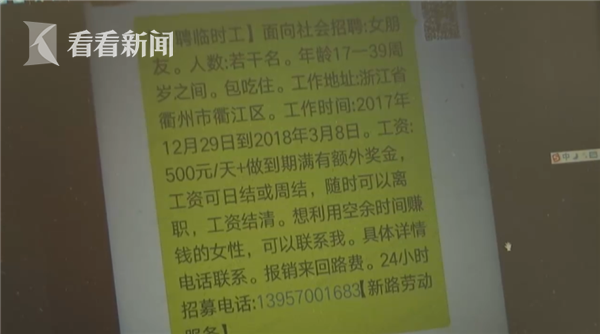 看看新闻
聘临时工】面向社会招聘:女朋
友。人数:若干名。年龄17一39周
岁之间。包吃住。工作地址:浙江省
衢州市衢江区。工作时间:2017年
12月29日到2018年3月8日。工资:
500元/天+做到期满有额外奖金,
工资可日结或周结，随时可以离
职，工资结清。想利用空余时间赚
钱的女性，可以联系我。具体详情
电话联系。报销来回路费。24小时
招募电话:13957001683【新路劳动
服务】
中